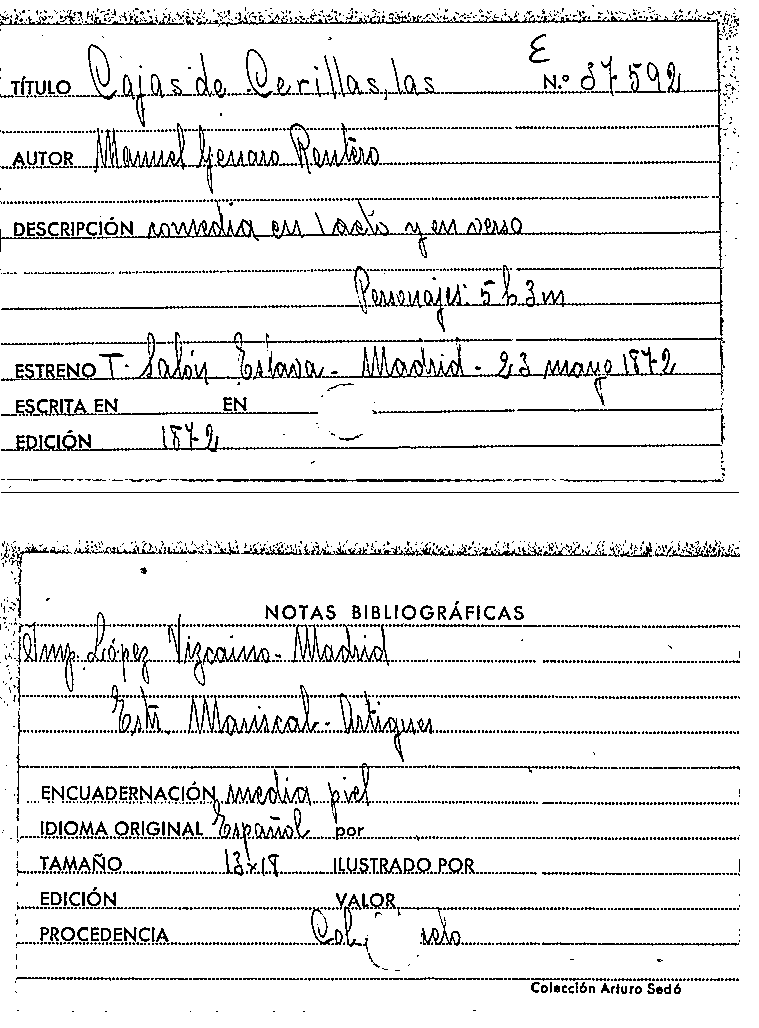 E
TÍTULO Cajas de Cerillas, las N.º 37592
AUTOR Manuel Genaro Rentero
DESCRIPCIÓN comedia en 1 acto y en verso
Personajes: 5 h 3 m
ESTRENO T. Salón Eslava - Madrid - 23 mayo 1872
ESCRITA EN EN
EDICIÓN 1872
NOTAS BIBLIOGRÁFICAS
Imp. López Vizcaino - Madrid
Estr. Mariscal - Artigues
ENCUADERNACIÓN media piel
IDIOMA ORIGINAL Español por
TAMAÑO ILUSTRADO POR
EDICIÓN VALOR
PROCEDENCIA
Colección Arturo Sedó